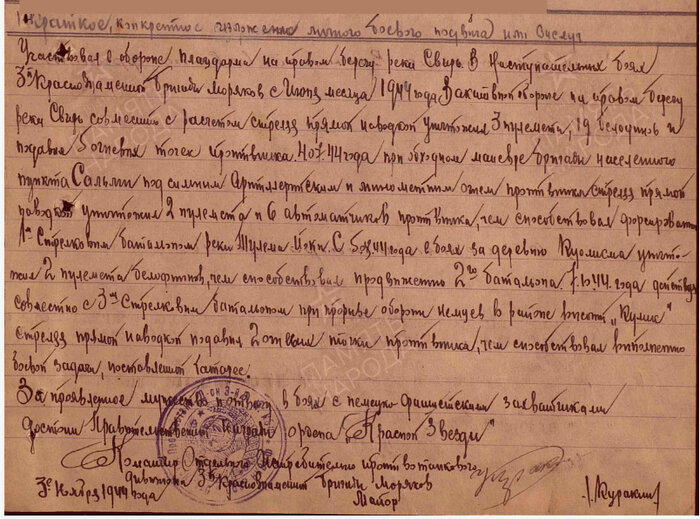 Краткое, конкретное изложение личного боевого подвига или заслуг
Участвовал в обороне плацдарма на правом берегу реки Свирь. В наступательных боях
3й Краснознаменной бригады моряков с июня месяца 1944 года. В активной обороне на правом берегу
реки Свирь совместно с расчетом стреляя прямой наводкой уничтожил 3 пулемета, 19 белофинн и
подавил 5 огневых точек противника. 4.07.44 года при обходном маневре бригады населенного
пункта Сальми под сильным артиллерийским и минометным огнем противника стреляя прямой
наводкой уничтожил 2 пулемета и 6 автоматчиков противника, чем способствовал форсированию
1м стрелковым батальоном реки Тулема-Йоки. С 5.07.44 года в боях за деревню Куолисма уничто-
жил 2 пулемета белофиннов, чем способствовал продвижению 2го батальона 7.10.44 года действуя
совместно с 3м стрелковым батальоном при прорыве обороны немцев в районе высоты „Кумик"
стреляя прямой наводкой подавил 2 огневые точки противника, чем способствовал выполнению
боевой задачи, поставленной батарее.
За проявленное мужество и отвагу в боях с немецко-фашистскими захватчиками
достоин Правительственной награды ордена „Красной Звезды"
Командир Отдельного Истребительно противотанкового
дивизиона 3й Краснознаменной бригады моряков
Майор /Куракин/
3го Ноября 1944 года